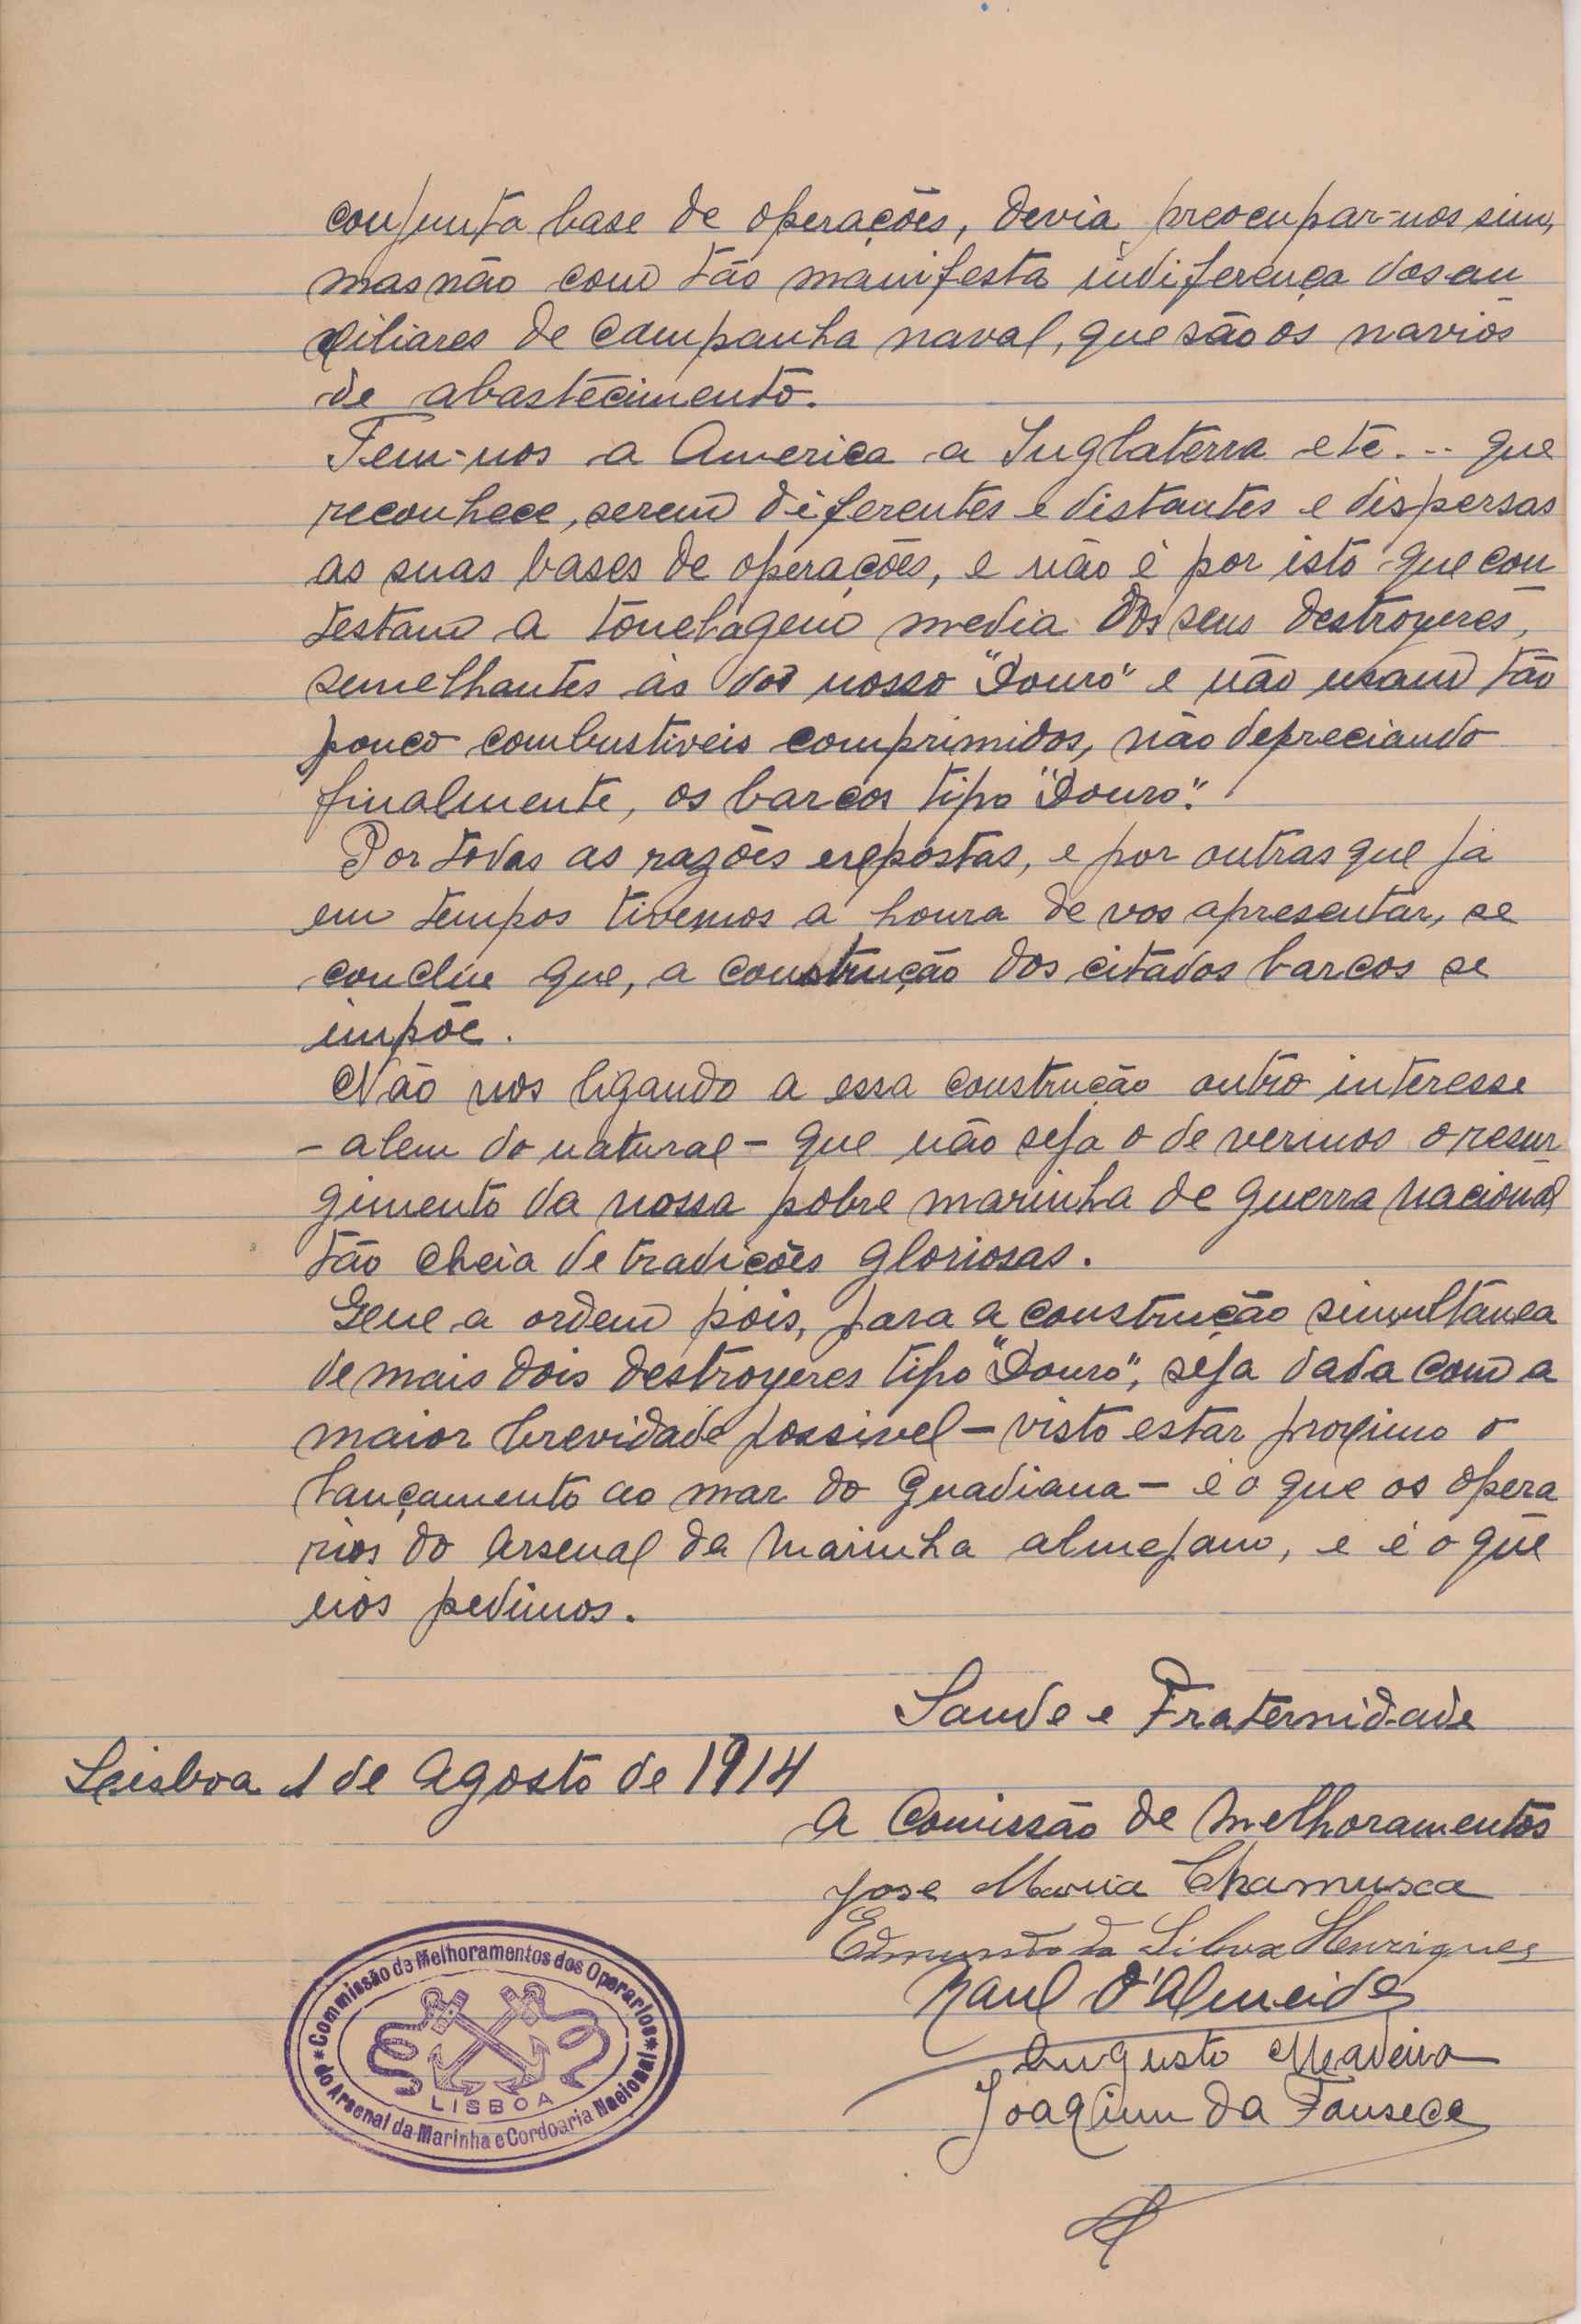 conjunta base de operações, devia preocupar-nos sim,
mas não com tão manifesta indiferença dos au
xiliares de campanha naval, que são os navios
de abastecimento.
Tem-nos a America a Inglaterra etc... que
reconhece, serem diferentes e distantes e dispersas
as suas bases de operações, e não é por isto que con
testam a tonelagem media dos seus destroyeres,
semelhantes ás dos nosso "Douro" e não usam tão
pouco combustiveis comprimidos, não depreciando
finalmente, os barcos tipo "Douro".
Por todas as razões expostas, e por outras que já
em tempos tivemos a honra de vos apresentar, se
conclue que, a construção dos citados barcos se
impõe.
Não nos ligando a essa construção outro interesse
- alem do natural - que não seja o de vermos o resur
gimento da nossa pobre marinha de guerra nacional
tão cheia de tradições gloriosas.
Que a ordem pois, para a construção simultânea
de mais dois destroyeres tipo "Douro", seja dada com a
maior brevidade possivel - visto estar proximo o
lançamento ao mar do Guadiana - é o que os opera
rios do Arsenal da Marinha almejam, e é o que
nós pedimos.
Saude e Fraternidade
Lisboa 1 de Agosto de 1914
A Comissão de Melhoramentos
Jose Maria Chamusca
Edmundo da Silva Henriques
Raul d'Almeida
Augusto Madeira
Joaquim da Fonseca
*Commissão de Melhoramentos dos Operarios*
do Arsenal da Marinha e Cordoaria Nacional
LISBOA